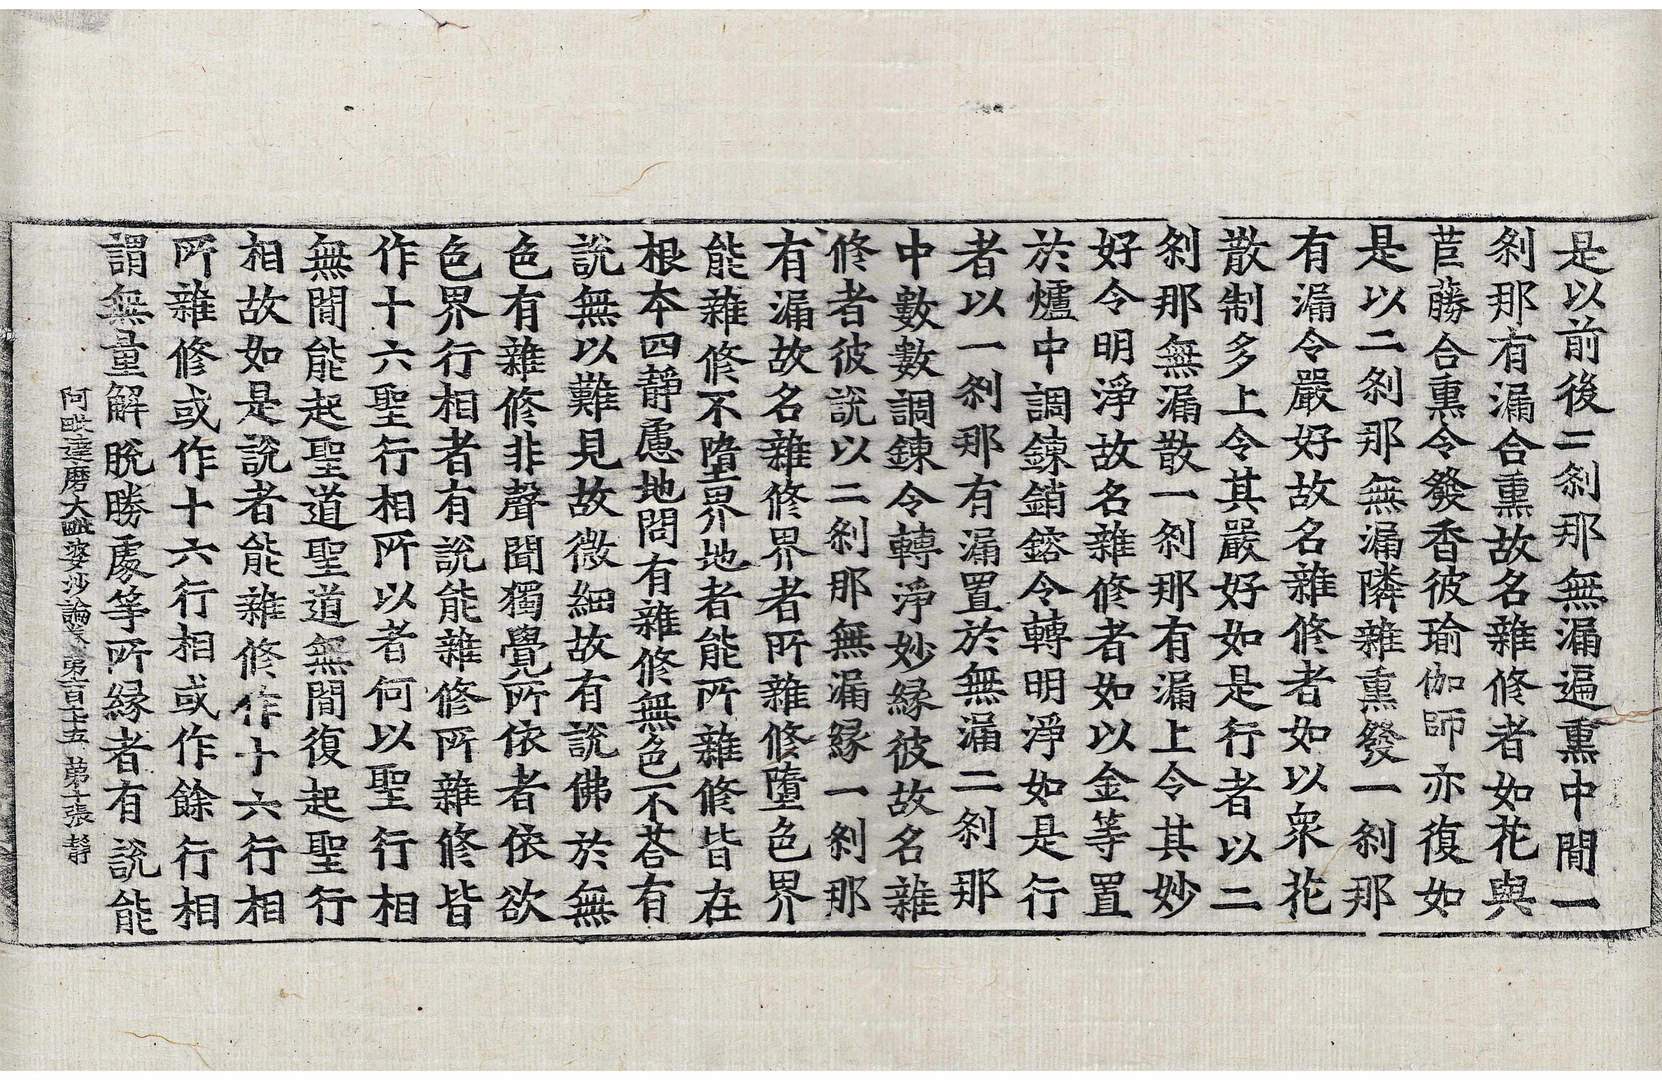 是以前後二刹那無漏遍熏中間一
刹那有漏合熏故名雜修者如花與
苣蕂合熏令發香彼瑜伽師亦復如
是以二刹那無漏隣雜熏發一刹那
有漏令嚴好故名雜修者如以衆花
散制多上令其嚴好如是行者以二
刹那無漏散一刹那有漏上令其妙
好令明淨故名雜修者如以金等置
於爐中調鍊銷鎔令轉明淨如是行
者以一刹那有漏置於無漏二刹那
中數數調鍊令轉淨妙緣彼故名雜
修者彼說以二刹那無漏緣一刹那
有漏故名雜修界者所雜修墮色界
能雜修不墮界地者能所雜修皆在
根本四靜慮地問有雜修無色不荅有
說無以難見故微細故有說佛於無
色有雜修非聲聞獨覺所依者依欲
色界行相者有說能雜修所雜修皆
作十六聖行相所以者何以聖行相
無間能起聖道聖道無間復起聖行
相故如是說者能雜修作十六行相
所雜修或作十六行相或作餘行相
謂無量解脫勝處等所緣者有說能
阿毗達磨大毗婆沙論卷第一百七十五 第十張 靜